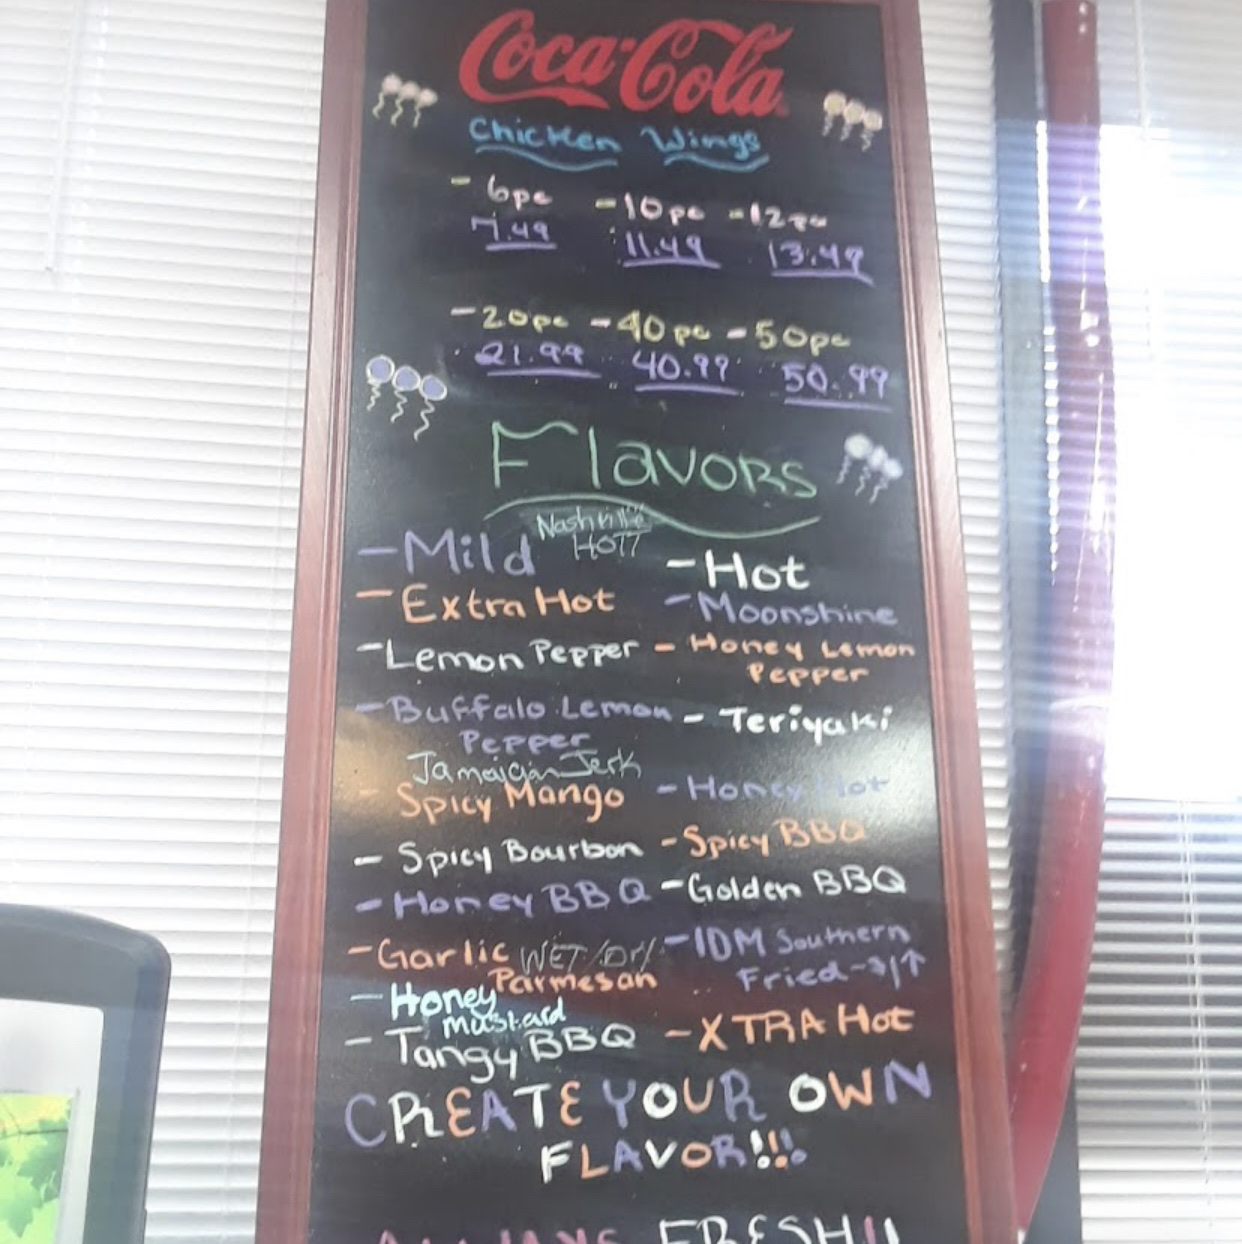 Coca-Cola
Chicken Wings
- 6pc - 10pc - 12pc
7.49 11.49 13.49
- 20pc - 40pc - 50pc
21.99 40.99 50.99
Flavors
Nashville
HOT!
- Mild - Hot
- Extra Hot - Moonshine
- Lemon Pepper - Honey Lemon
Pepper
- Buffalo Lemon - Teriyaki
Pepper
Jamaican Jerk
- Spicy Mango - Honey Hot
- Spicy Bourbon - Spicy BBQ
- Honey BBQ - Golden BBQ
- Garlic WET/Dry - IDM Southern
Parmesan Fried
- Honey
Mustard
- Tangy BBQ - XTRA Hot
CREATE YOUR OWN
FLAVOR!!!
ALWAYS FRESH!!